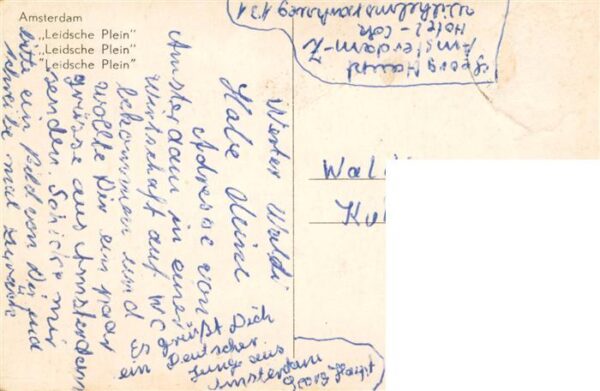 Amsterdam
„Leidsche Plein"
„Leidsche Plein"
"Leidsche Plein"
Werter Waldi
Habe Deine
Adresse von
Amsterdam in einer
Wirtschaft auf WC
bekommen und
wollte Dir ein paar
grüsse aus Amsterdam
senden. Schicke mir
bitte ein Bild von Dir und
schreibe mal zurück
Es grüßt Dich
ein Deutscher
Junge aus
Amsterdam
Georg
Georg Haupt
Hotel-
Amsterdam-Z
131
Wal
Ku